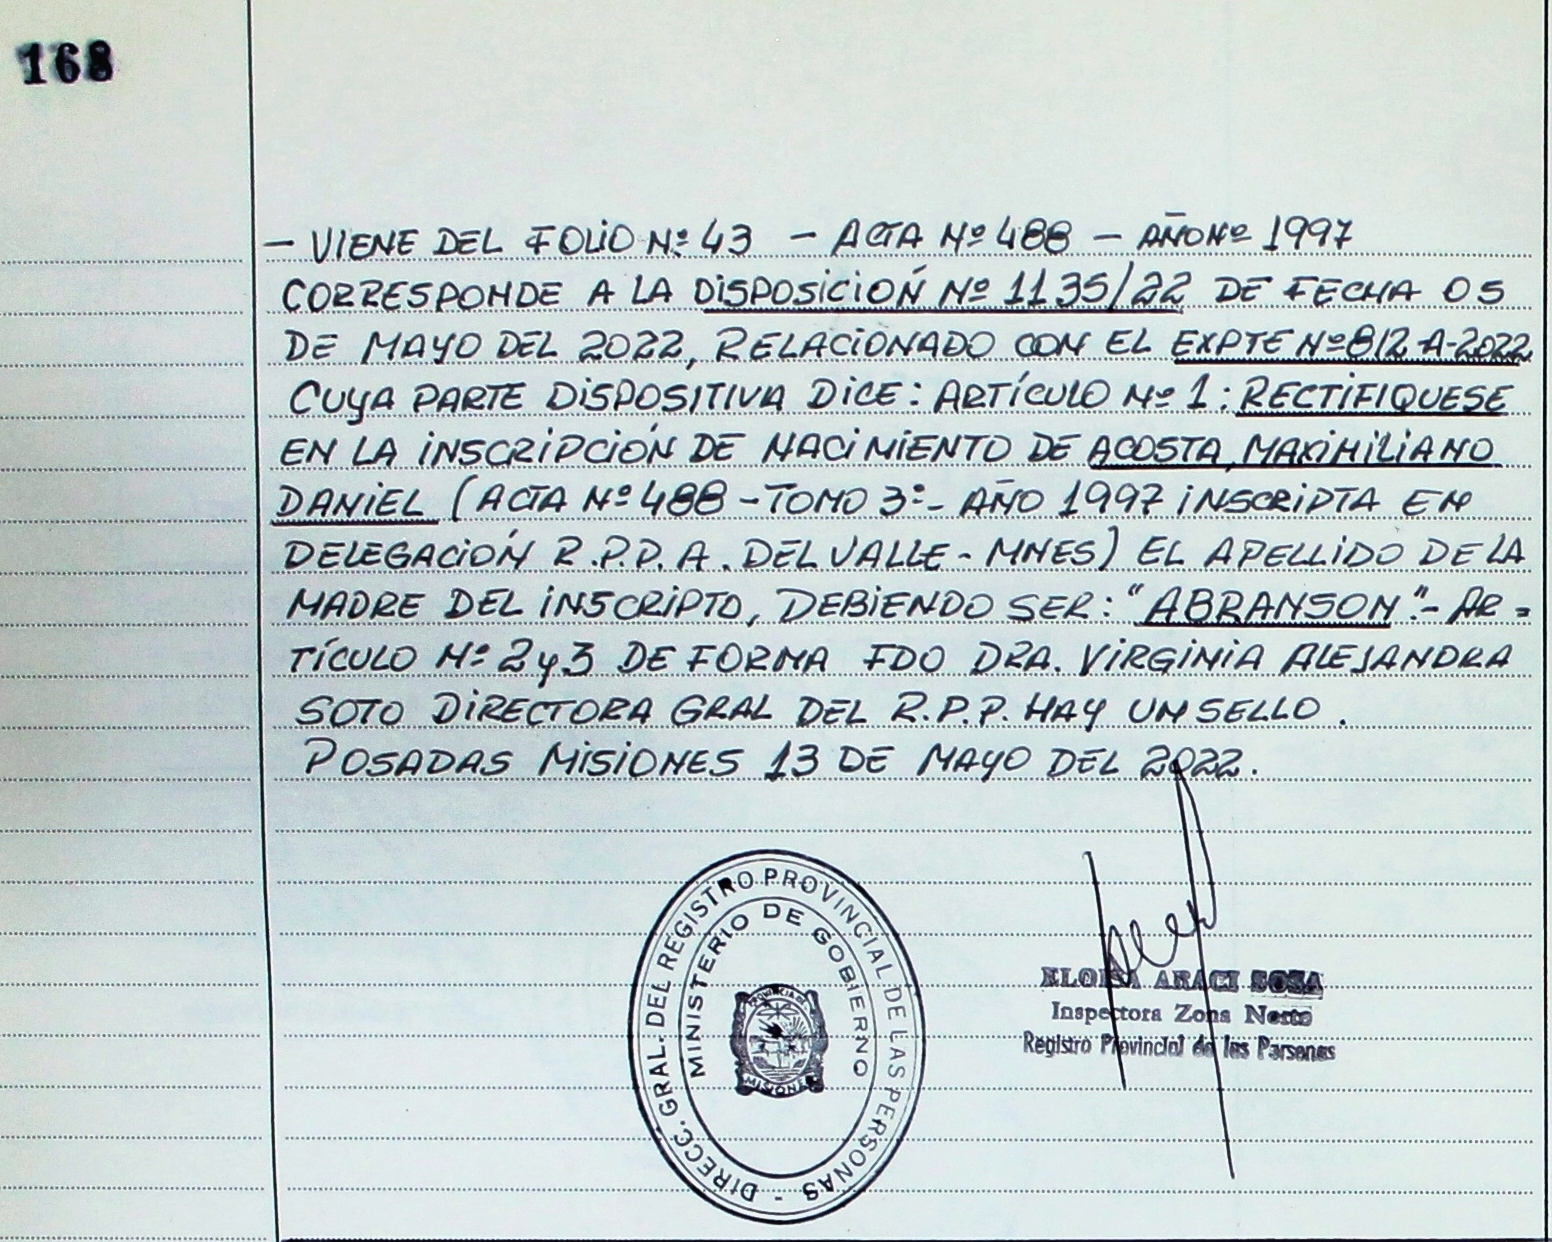 168
- VIENE DEL FOLIO Nº 43 - ACTA Nº 488 - AÑO Nº 1997
CORRESPONDE A LA DISPOSICIÓN Nº 1135/22 DE FECHA 05
DE MAYO DEL 2022, RELACIONADO CON EL EXPTE Nº 812-A-2022
CUYA PARTE DISPOSITIVA DICE: ARTÍCULO Nº 1: RECTIFIQUESE
EN LA INSCRIPCIÓN DE NACIMIENTO DE ACOSTA, MAXIMILIANO
DANIEL (ACTA Nº 488 - TOMO 3º - AÑO 1997 INSCRIPTA EN
DELEGACIÓN R.P.P. A. DEL VALLE - MNES) EL APELLIDO DE LA
MADRE DEL INSCRIPTO, DEBIENDO SER: "ABRANSON".- AR=
TÍCULO Nº 2 y 3 DE FORMA FDO DRA. VIRGINIA ALEJANDRA
SOTO DIRECTORA GRAL DEL R.P.P. HAY UN SELLO.
POSADAS MISIONES 13 DE MAYO DEL 2022.
DIRECC. GRAL. DEL REGISTRO PROVINCIAL DE LAS PERSONAS -
MINISTERIO DE GOBIERNO
PROVINCIA DE
MISIONES
ELOISA ARACI SOSA
Inspectora Zona Norte
Registro Provincial de las Personas